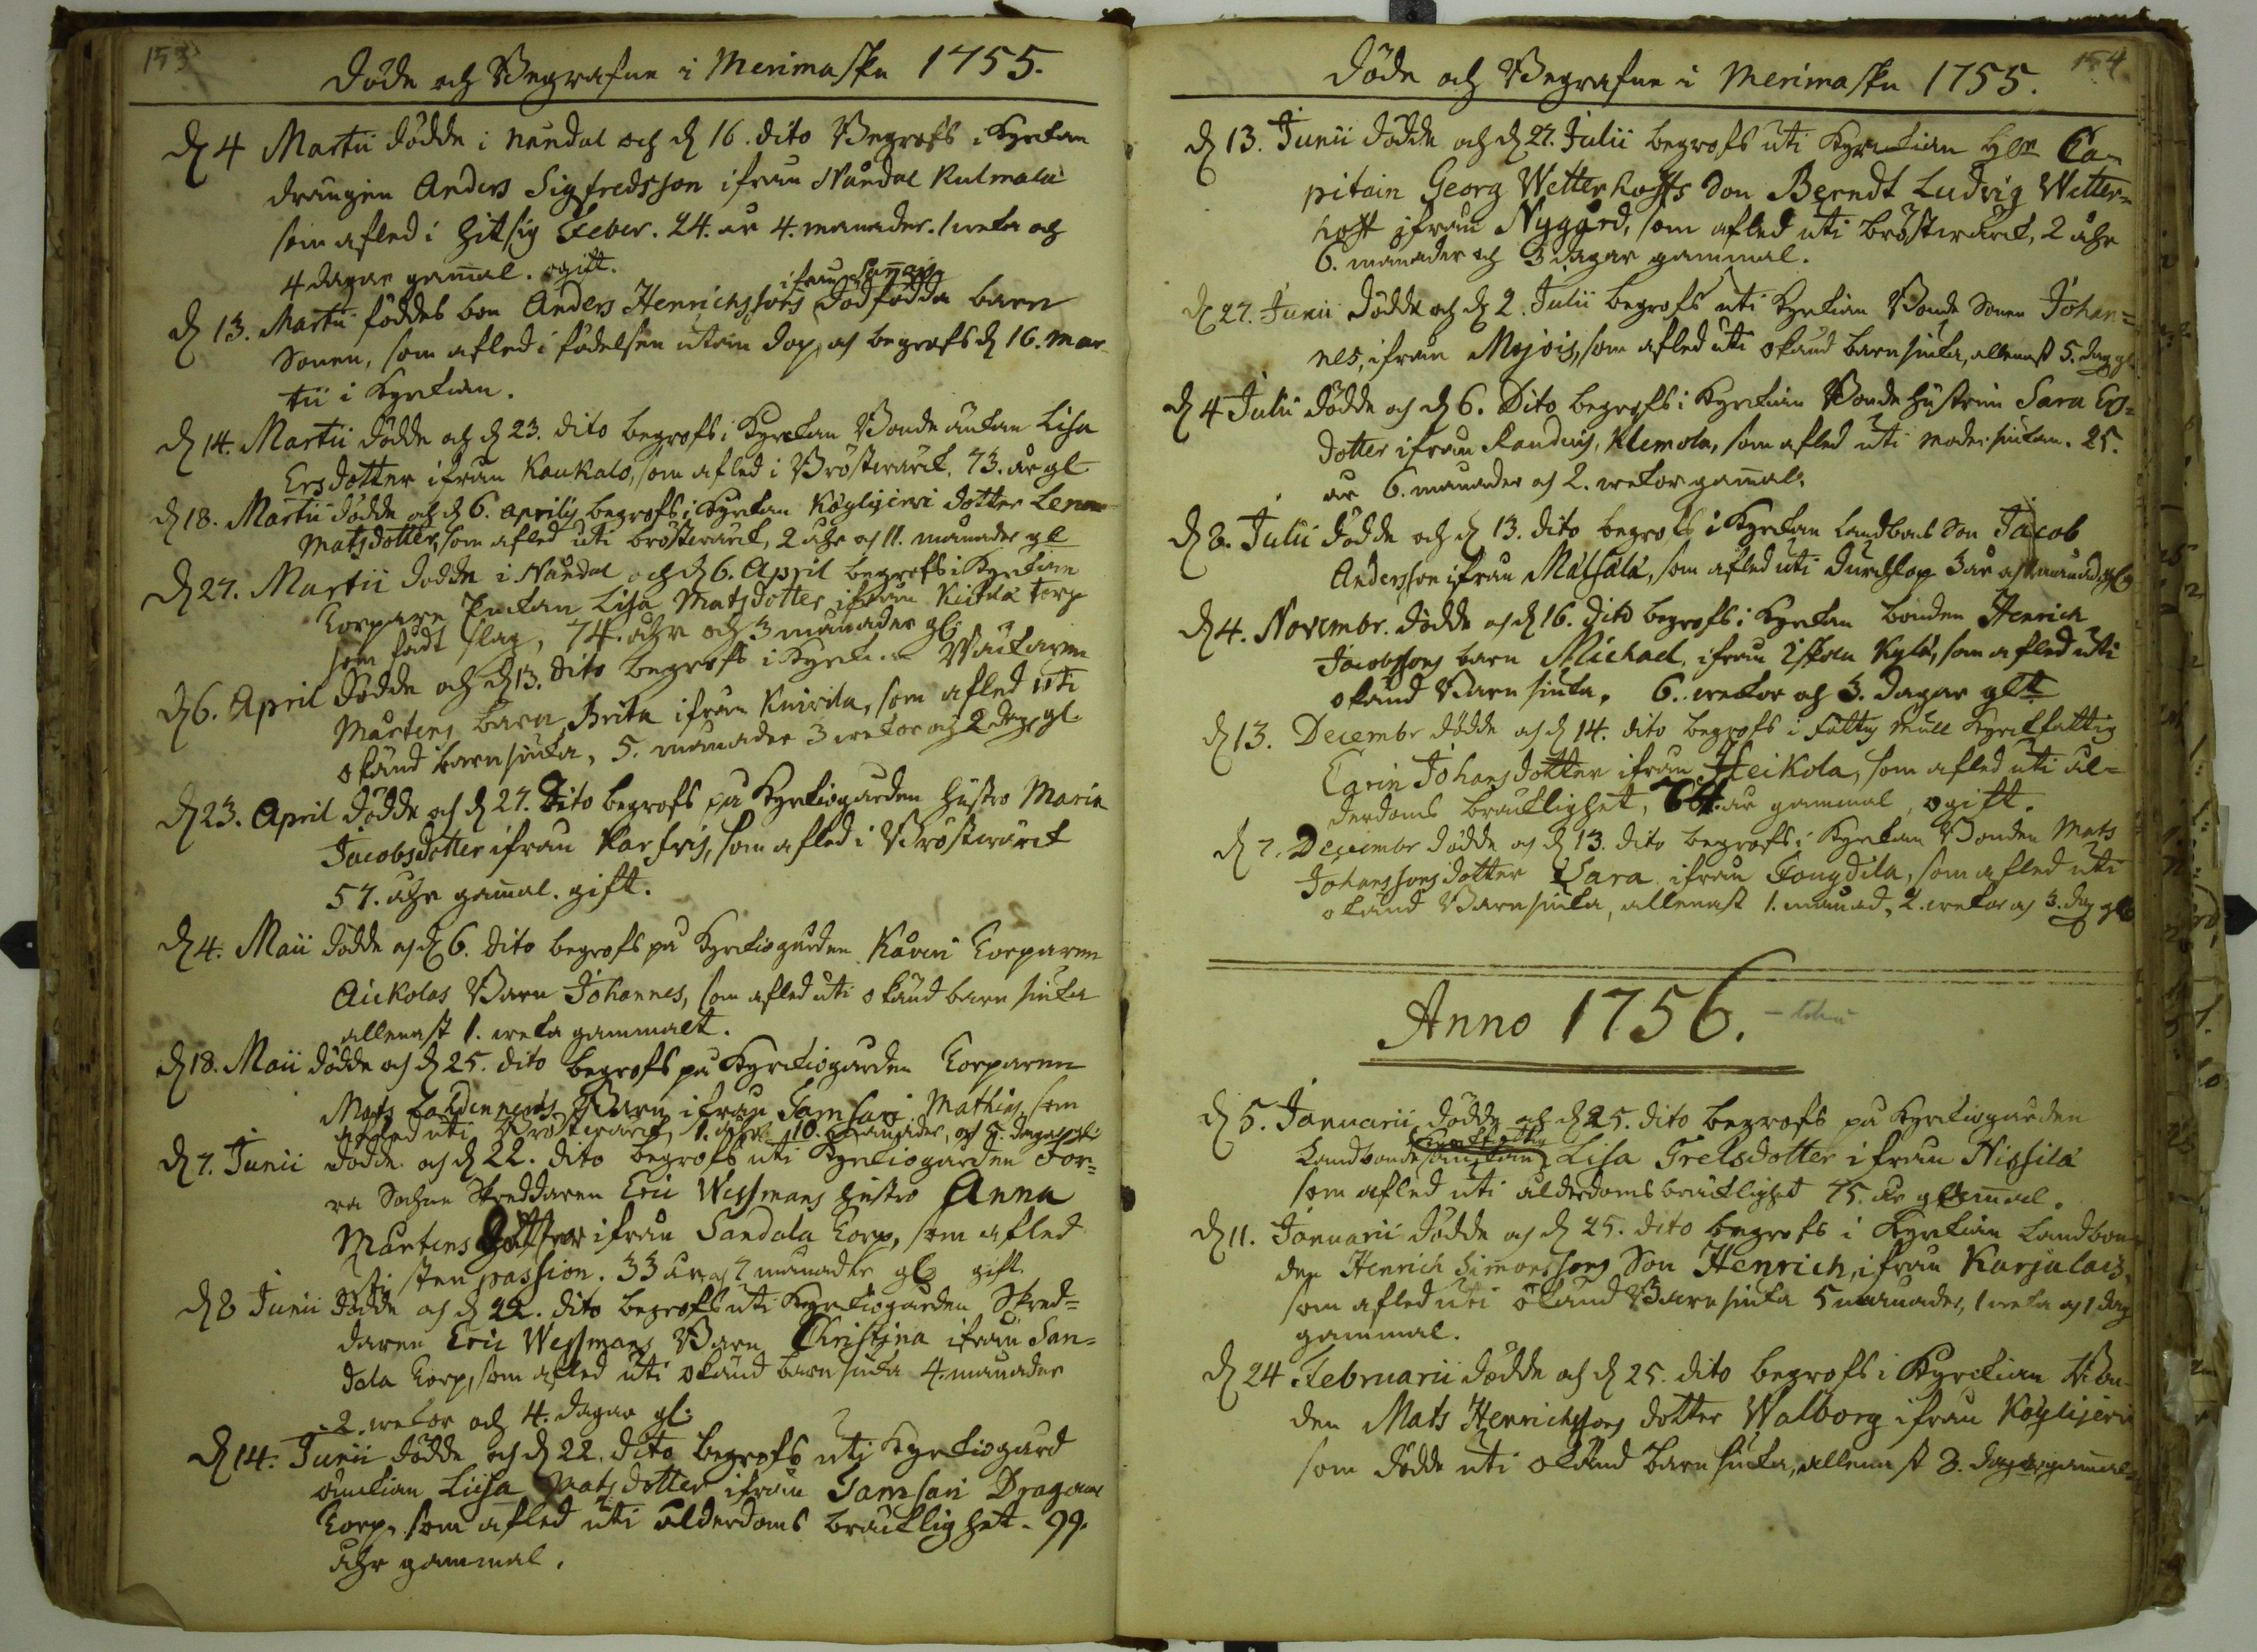 153
Döde och Begrafne i Merimasku 1755.
d 4 Martii dödde i Nåndal och d 16. dito Begrofs i Kyrckan
drängen Anders Sigfredsson ifrån Nåndal Kulmala
som afled i hitsig Feber. 24. år 4. månader. 1 weka och
4 dagar gamal. ogift.
d 13. Martii föddes bon Anders Henrichssons dödfödda barn
Sonen, som afled i födelsen utom dop, och begrofs d 16. Mar-
tii i Kyrckian.
d 14. Martii dödde och d 23. dito begrofs i Kyrckan Bonde änkan Lisa
Ersdotter ifrån Kaukalo, som afled i Bröstwärck. 73. år gl
d 18. Martii dödde och d 6. Aprilis begrofs i Kyrckan Köylijerwi dotter Lena
Matsdotter, som afled uti bröstwärck, 2 åhr och 11. månader gl
d 27. Martii dödde i Nåndal och d 6. April begrofs i Kyrckian
Torpare Enckan Lisa Matsdotter ifrån torp
som fådt slag, 74. åhr och 3 månader gl:
d 6. April dödde och d 13. dito begrofs i Kyrckan
Mårtens barn Brita ifrån Knivila, som afled uti
okänd barnsiuka, 5. månader 3 wekor och 2 dag. gl.
d 23. April dödde och d 27. Dito begrofs på Kyrckiogården hustro Maria
Jacobsdotter ifrån Karfris, som afled i Bröstwärck
57. åhr gamal. gift.
d 4. Maii dödde och d 6. dito begrofs på Kyrckiogården Torparen
Barn Johannes, som afled uti okänd barn siuka
allenast 1. weka gammalt.
d 18. Maii dödde och d 25. dito begrofs på Kyrckiogården Torparen
Mats Barn ifrån Samsari Mathias, som
afled uti Bröstwärck, 1. åhr 10. månader, och 5. dagar gl:
d 7. Junii dödde och d 22. dito begrofs uti Kyrckiogården For=
ra Sochne Skreddaren Eric Wessmans hustro Anna
Mårtens dotter ifrån Sandala Torp, som afled
uti sten passion. 33 år och 7 månader gl: gift
d 8 Junii dödde och d 22. dito begrofs uti Kyrckiogården Skred=
daren Eric Wessmans Barn Christina ifrån San=
dala Torp, som afled uti okänd barn siuka 4. månader
2. wekor och 4. dagar gl:
d 14. Junii dödde och d 22. dito begrofs uti Kyrckiogård
Enckian Liisa Matsdotter ifrån Samsari Dragone
Torp, som afled uti ålderdoms bräcklighet. 99.
åhr gammal.
154
Döde och Begrafne i Merimasku 1755.
d 13. Junii dödde och d 27. Julii begrofs uti Kyrckian Hr Ca-
pitain Georg Wetterhoffs Son Berndt Ludvig Wetter=
hoff ifrån Nygård, som afled uti bröstwärck, 2 åhr
6. månader och 3 dagar gammal.
d 27. Junii dödde och d 2. Julii begrofs uti Kyrckian Bonde Sonen Johan=
nes, ifrån Mojois, som afled uti okänd barnsiuka, allenast 5. dag gl
d 4 Julii dödde och d 6. Dito begrofs i Kyrckian Bonde hustrun Sara Ers=
dotter ifrån Klemola, som afled uti modersiukan. 25.
år 6. månader och 2. wekor gamal.
d 8. Julii dödde och d 13. dito begrofs i Kyrckan Landbons Son Jacob
Andersson ifrån Mälsälä, som afled uti Durchlop 3 år och månad. gl
d 4. Novembr. dödde och d 16. dito begrofs i Kyrckan bonden Henrich
Jacobssons barn Michael, ifrån Iskola Kylä, som afled uti
okänd Barn siuka, 6. wekor och 3. dagar glt
d 13. Decembr dödde och d 14. dito begrofs i Fattig Mull Kyrckfattig
Carin Johansdotter ifrån Heikola, som afled uti ål=
derdoms bräcklighet, 64. år gammal, ogift.
d 7. Decembr dödde och d 13. dito begrofs i Kyrckan Bonden Mats
Johanssons dotter Sara ifrån Fougdila, som afled uti
okänd Barnsiuka, allenast 1. månad, 2. wekor och 3. dag gl
Anno 1756.
d 5. Januarii dödde och d 25. dito begrofs på Kyrckiogården
Landbonde Lisa Grelsdotter ifrån Nissilä
som afled uti ålderdoms bräcklighet 75. år gammal.
d 11. Januarii dödde och d 25. dito begrofs i Kyrckian Landbon-
den Henrich Simonssons Son Henrich, ifrån Karjalais,
som afled uti okänd Barnsiuka 5 månader, 1 weka och 1 dag
gammal.
d 24 Februarii dödde och d 25. dito begrofs i Kyrckian Bon-
den Mats Henrichssons dotter Walborg ifrån Köylijerwi
som dödde uti okänd barn siuka, allenast 3. dagar gamal